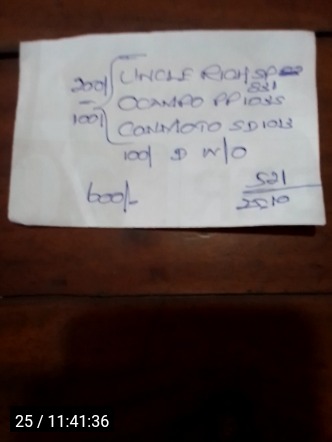 200/ UNCLE RICH SP
531
100/ OCAMPO PP 1035
CONMOTO SD 1033
100/ D W/O
600/- 521
2510
25 / 11:41:36